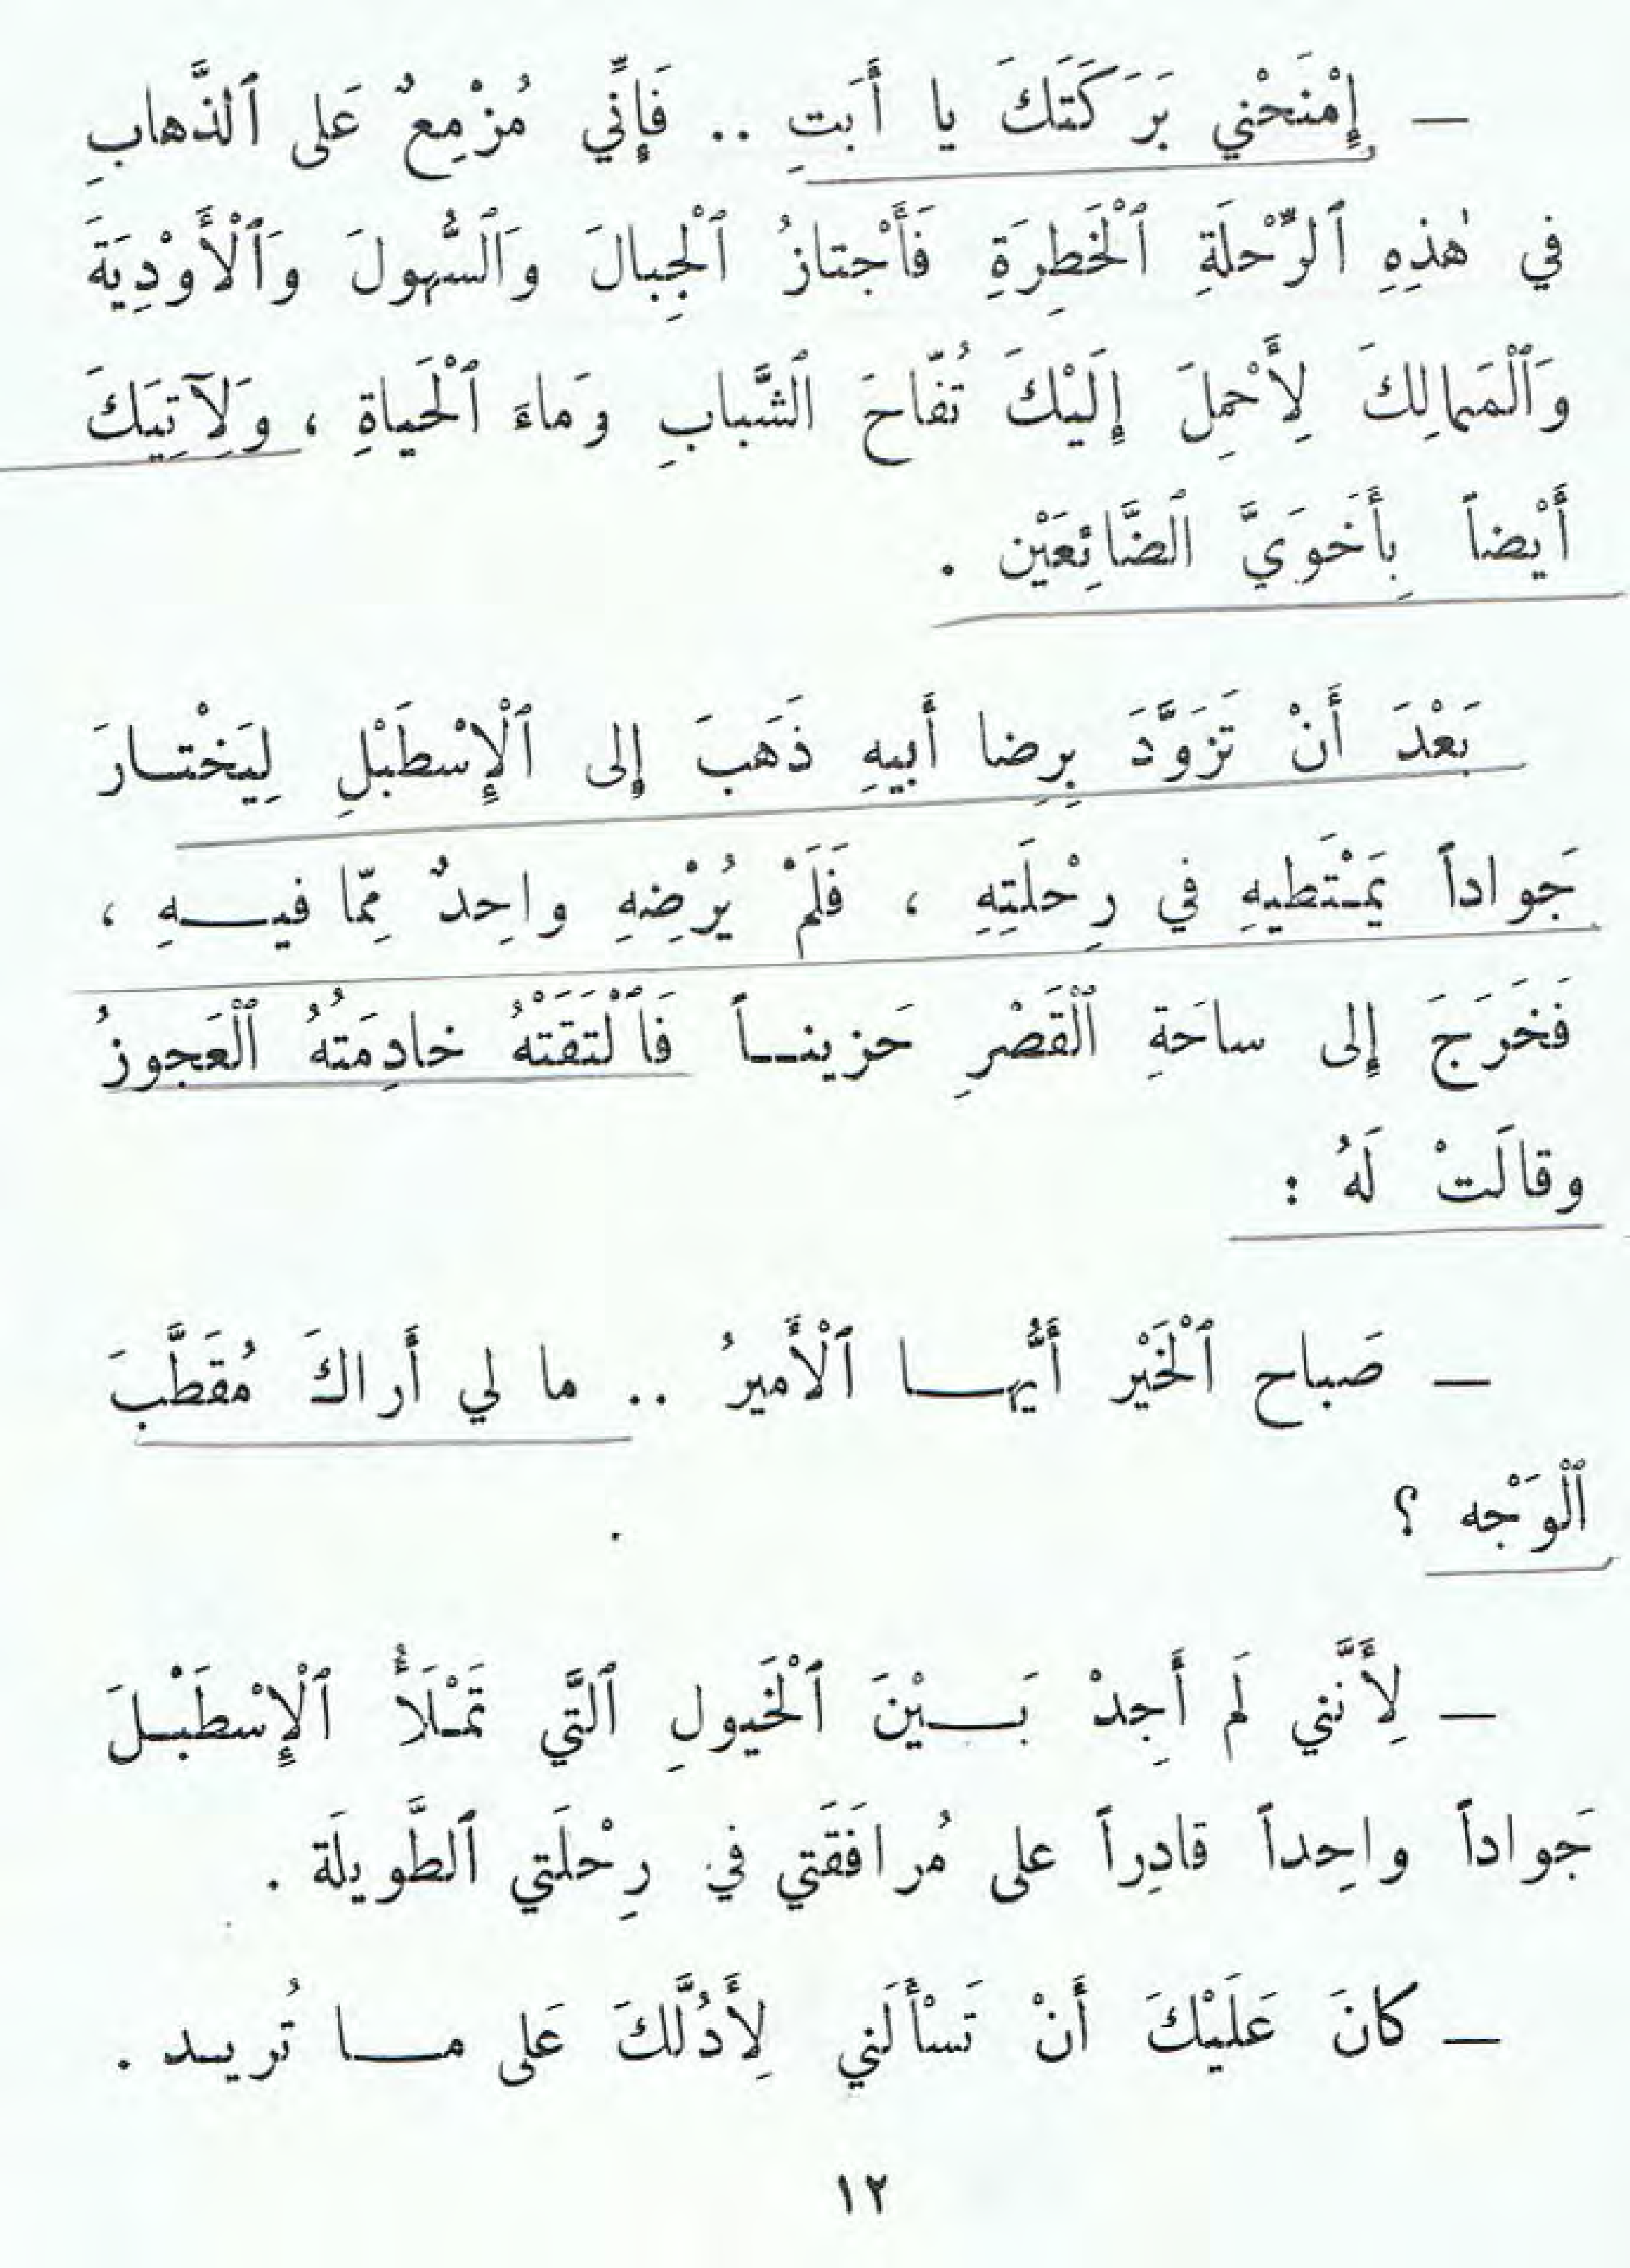 — إِمْنَحْني بَرَكَتَكَ يا أَبَتِ .. فَإِنِّي مُزْمِعٌ عَلى ٱلذَّهابِ
في هٰذِهِ ٱلرِّحْلَةِ ٱلْخَطِرَةِ فَأَجْتازُ ٱلْجِبالَ وَٱلسُّهولَ وَٱلْأَوْدِيَةَ
وَٱلْمَمالِكَ لِأَحْمِلَ إِلَيْكَ تُفّاحَ ٱلشَّبابِ وَماءَ ٱلْحَياةِ ، وَلِآتِيَكَ
أَيْضاً بِأَخَوَيَّ ٱلضَّائِعَيْن .
بَعْدَ أَنْ تَزَوَّدَ بِرِضا أَبيهِ ذَهَبَ إِلى ٱلْإِسْطَبْلِ لِيَخْتـارَ
جَواداً يَمْتَطيهِ في رِحْلَتِهِ ، فَلَمْ يُرْضِهِ واحِدٌ مِمّا فيـــهِ ،
فَخَرَجَ إِلى ساحَةِ ٱلْقَصْرِ حَزينــاً فَٱلْتَقَتْهُ خادِمَتهُ ٱلْعَجوزُ
وقالَتْ لَهُ :
— صَباح ٱلْخَيْر أَيُّهـــا ٱلْأَميرُ .. ما لي أَراكَ مُقَطَّبَ
ٱلْوَجْه ؟
— لِأَنَّني لَم أَجِدْ بَـــيْنَ ٱلْخَيولِ ٱلَّتي تَمْلَأُ ٱلْإِسْطَبْـلَ
جَواداً واحِداً قادِراً على مُرافَقَتي في رِحْلَتي ٱلطَّويلَة .
— كانَ عَلَيْكَ أَنْ تَسْأَلَني لِأَدُلَّكَ عَلى مـــا تُريـد .
١٢